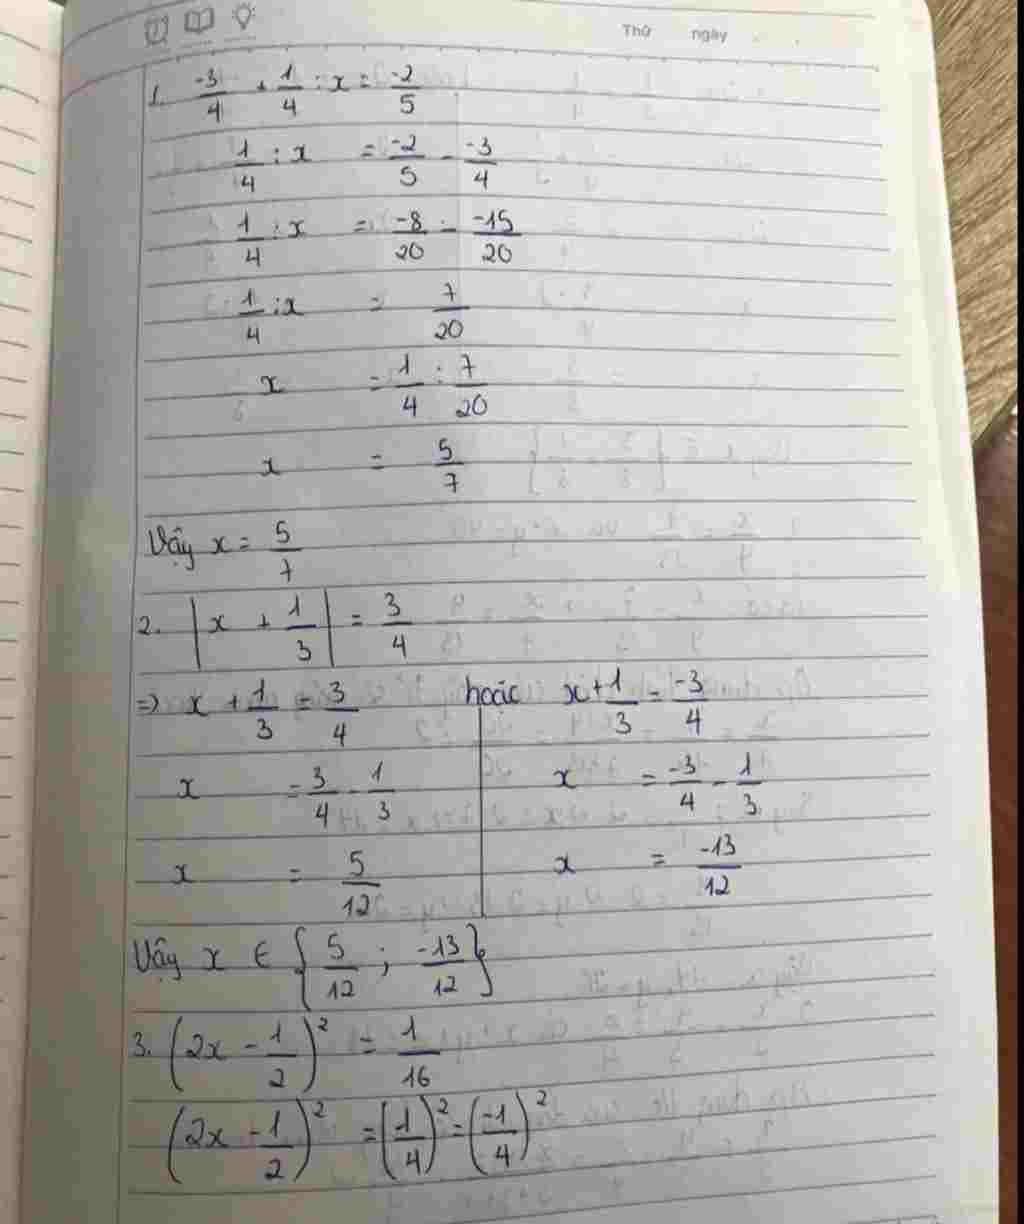 Thứ ngày
1. -3/4 + 1/4 : x = -2/5
1/4 : x = -2/5 - -3/4
1/4 : x = -8/20 - -15/20
1/4 : x = 7/20
x = 1/4 : 7/20
x = 5/7
Vậy x = 5/7
2. |x + 1/3| = 3/4
=> x + 1/3 = 3/4 hoặc x + 1/3 = -3/4
x = 3/4 - 1/3 x = -3/4 - 1/3
x = 5/12 x = -13/12
Vậy x ∈ {5/12 ; -13/12}
3. (2x - 1/2)² = 1/16
(2x - 1/2)² = (1/4)² = (-1/4)²